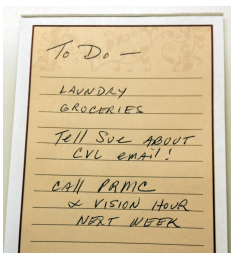 To Do –
LAUNDRY
GROCERIES
Tell Sue ABOUT
CVL email!
CALL PRMC
& VISION HOUR
NEXT WEEK